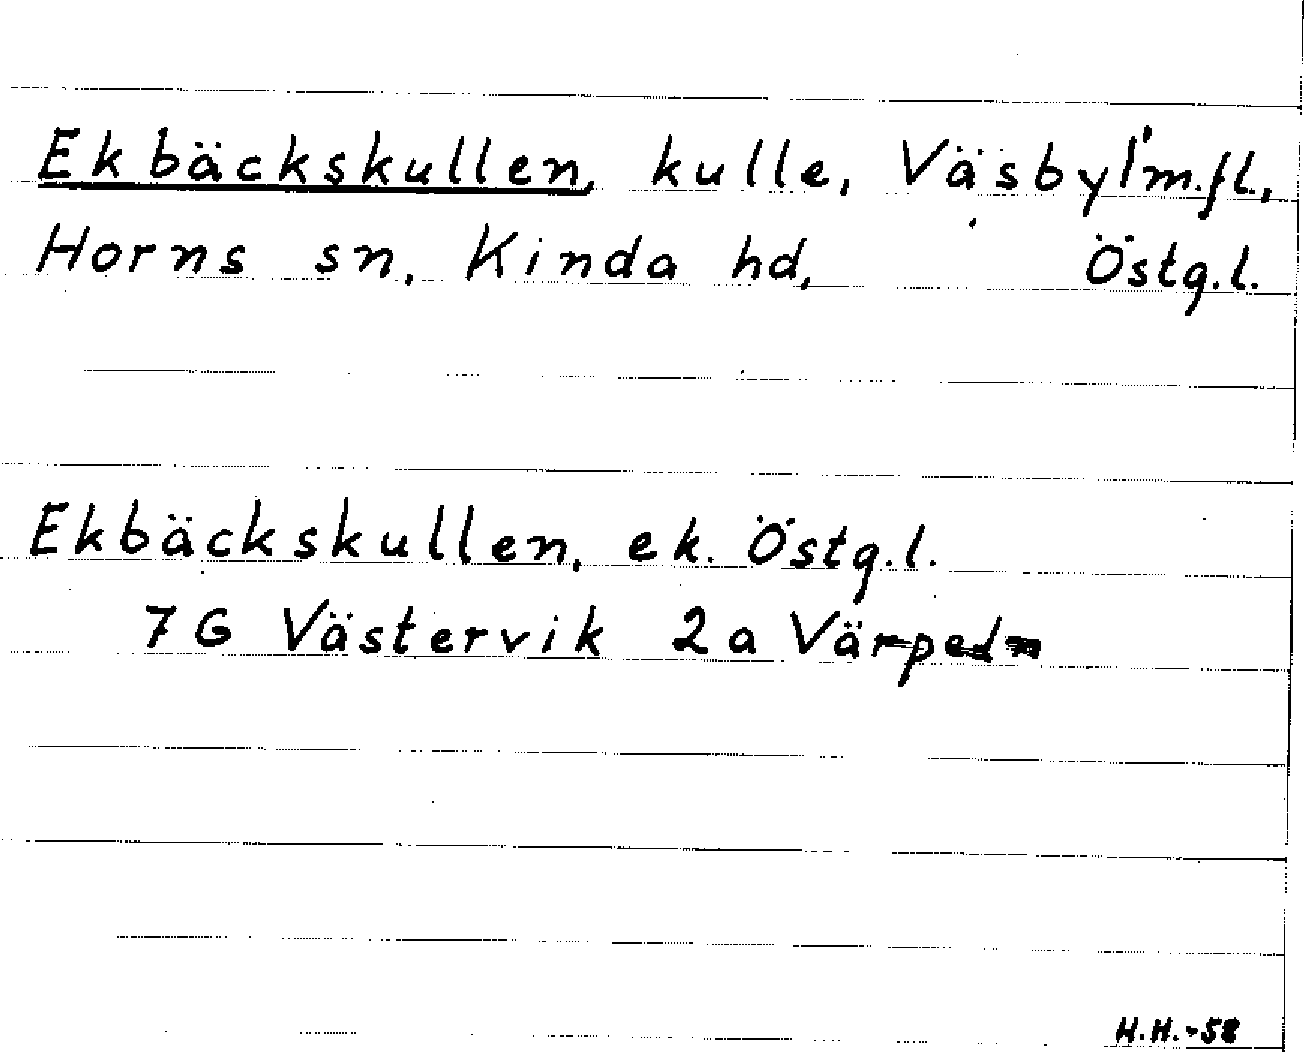 Ekbäckskullen, kulle, Väsby 1 m.fl.,
Horns sn, Kinda hd, Östg.l.
Ekbäckskullen, ek. Östg.l.
7 G Västervik 2 a Värpeln
H.H. -58